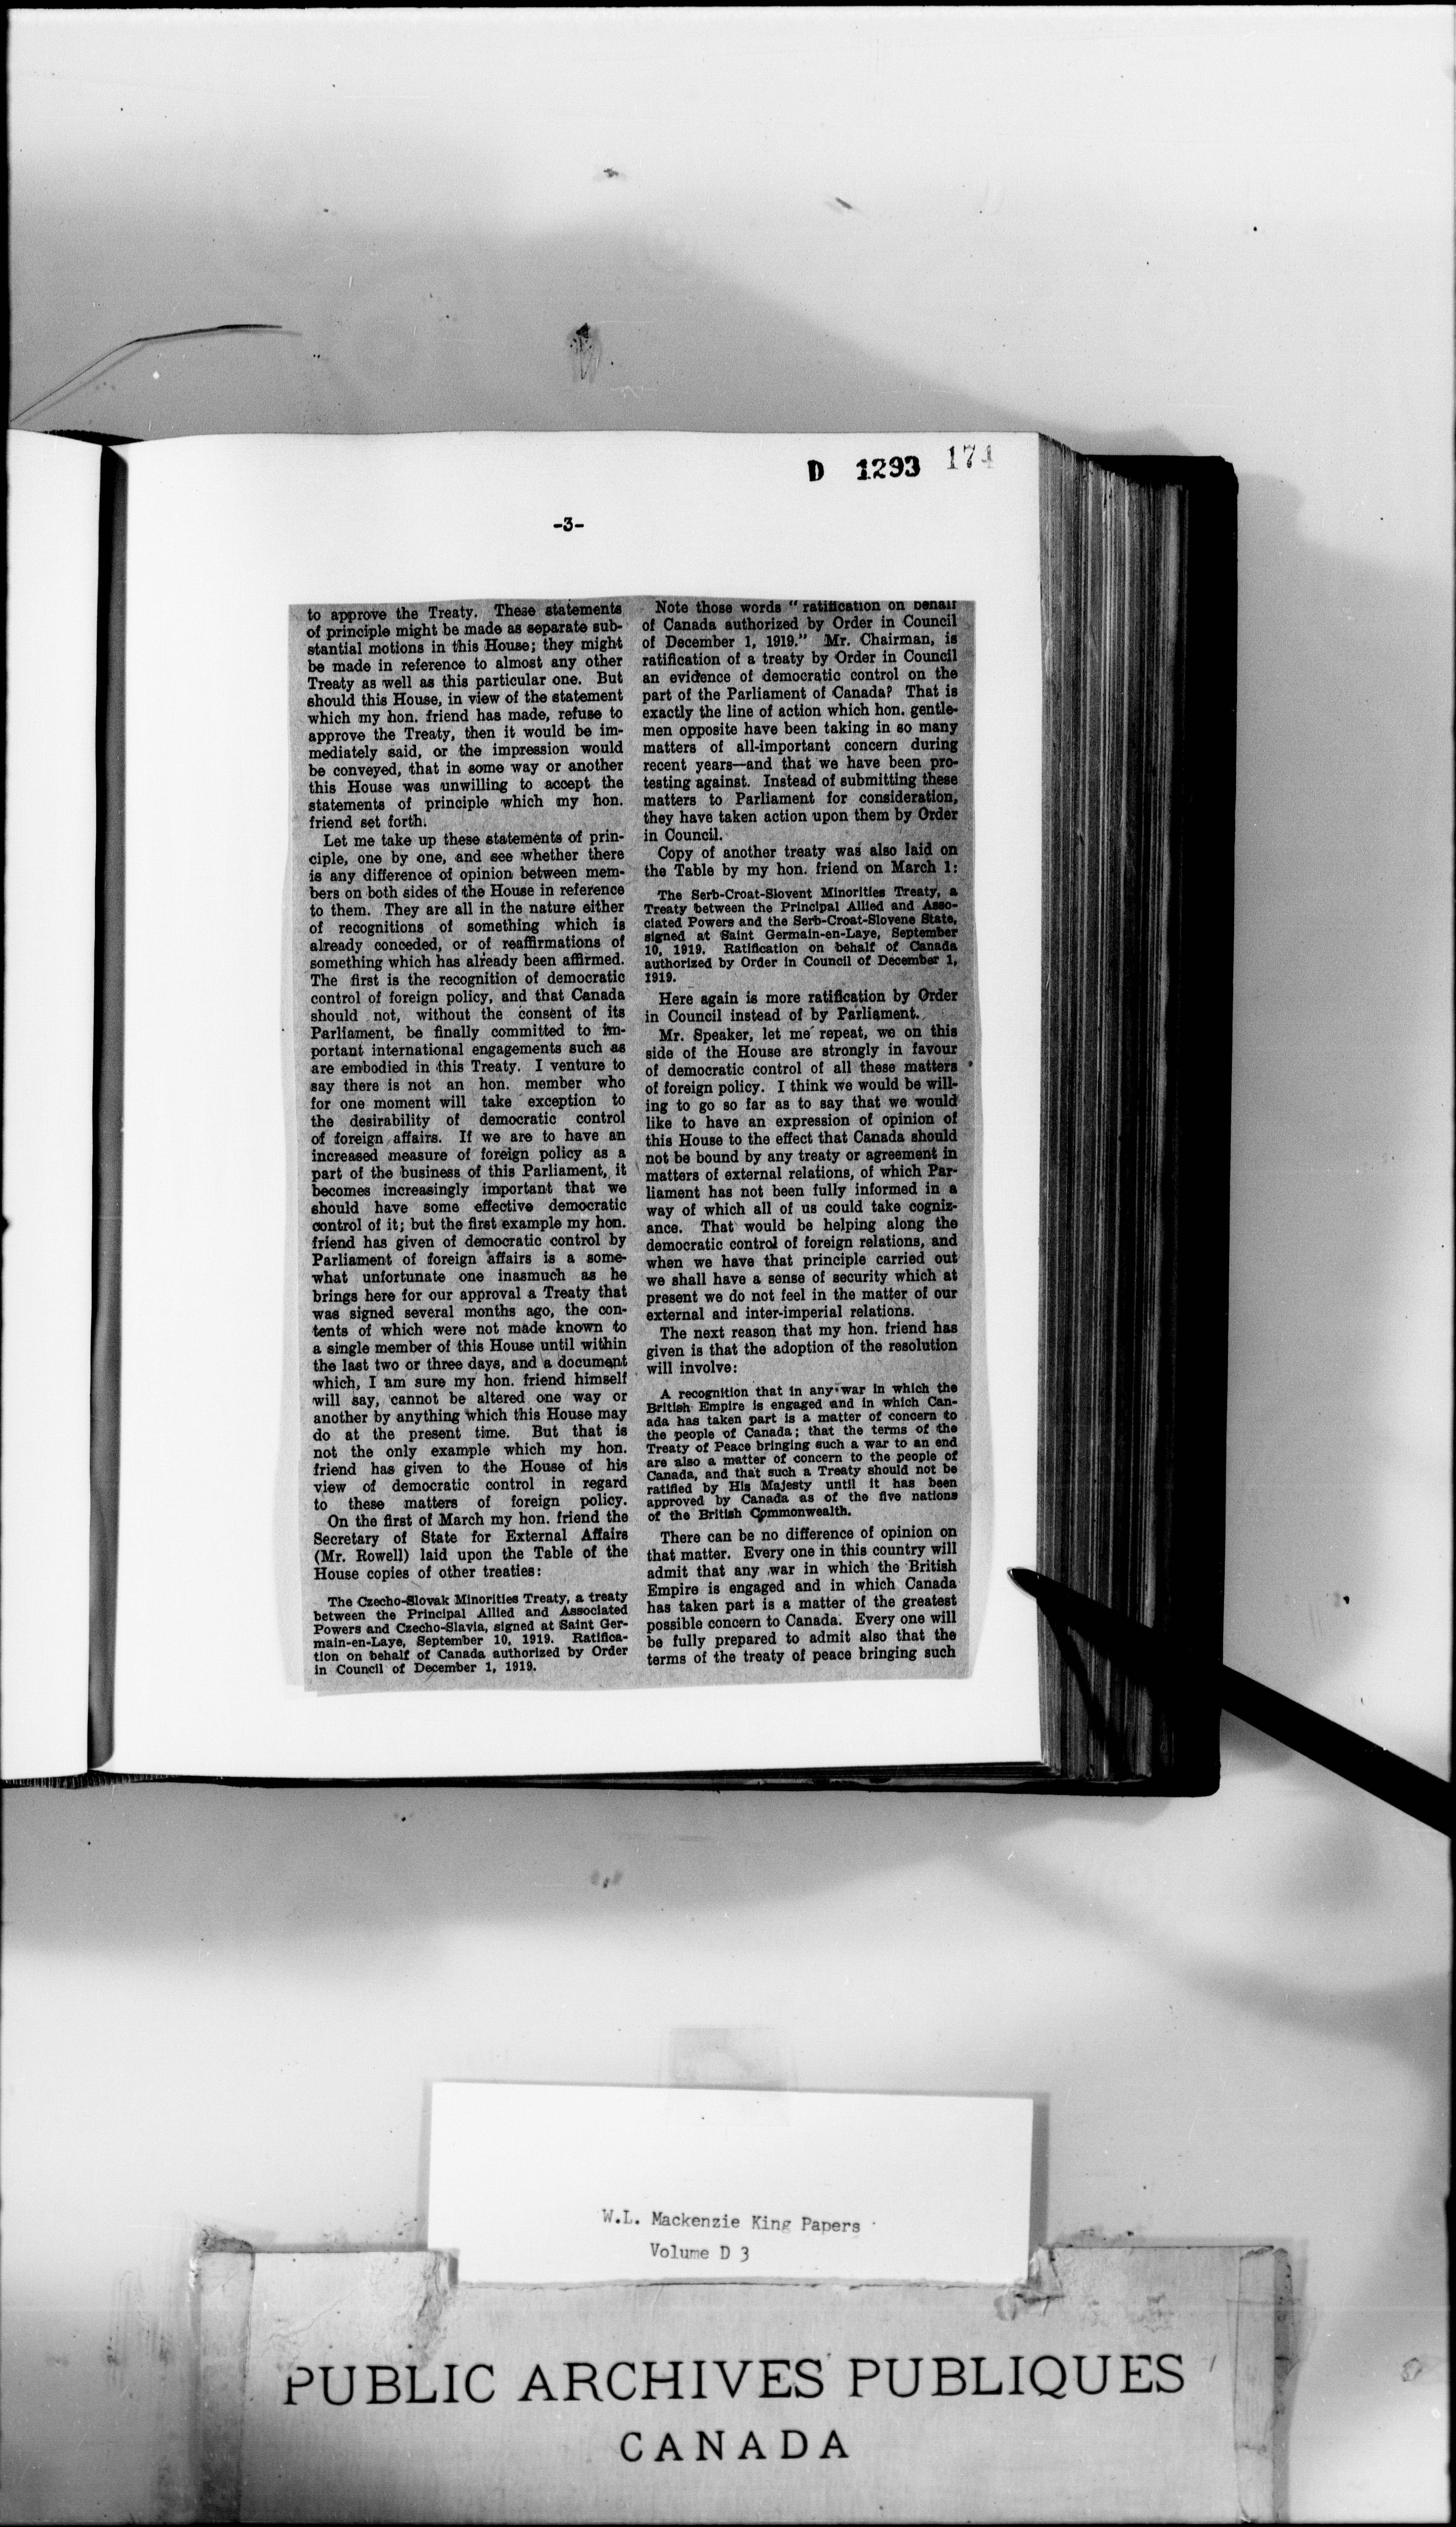 D 1293 174
-3-
to approve the Treaty. These statements
of principle might be made as separate sub-
stantial motions in this House; they might
be made in reference to almost any other
Treaty as well as this particular one. But
should this House, in view of the statement
which my hon. friend has made, refuse to
approve the Treaty, then it would be im-
mediately said, or the impression would
be conveyed, that in some way or another
this House was unwilling to accept the
statements of principle which my hon.
friend set forth.
Let me take up these statements of prin-
ciple, one by one, and see whether there
is any difference of opinion between mem-
bers on both sides of the House in reference
to them. They are all in the nature either
of recognitions of something which is
already conceded, or of reaffirmations of
something which has already been affirmed.
The first is the recognition of democratic
control of foreign policy, and that Canada
should not, without the consent of its
Parliament, be finally committed to im-
portant international engagements such as
are embodied in this Treaty. I venture to
say there is not an hon. member who
for one moment will take exception to
the desirability of democratic control
of foreign affairs. If we are to have an
increased measure of foreign policy as a
part of the business of this Parliament, it
becomes increasingly important that we
should have some effective democratic
control of it; but the first example my hon.
friend has given of democratic control by
Parliament of foreign affairs is a some-
what unfortunate one inasmuch as he
brings here for our approval a Treaty that
was signed several months ago, the con-
tents of which were not made known to
a single member of this House until within
the last two or three days, and a document
which, I am sure my hon. friend himself
will say, cannot be altered one way or
another by anything which this House may
do at the present time. But that is
not the only example which my hon.
friend has given to the House of his
view of democratic control in regard
to these matters of foreign policy.
On the first of March my hon. friend the
Secretary of State for External Affairs
(Mr. Rowell) laid upon the Table of the
House copies of other treaties:
The Czecho-Slovak Minorities Treaty, a treaty
between the Principal Allied and Associated
Powers and Czecho-Slavia, signed at Saint Ger-
main-en-Laye, September 10, 1919. Ratifica-
tion on behalf of Canada authorized by Order
in Council of December 1, 1919.
Note those words "ratification on behalf
of Canada authorized by Order in Council
of December 1, 1919." Mr. Chairman, is
ratification of a treaty by Order in Council
an evidence of democratic control on the
part of the Parliament of Canada? That is
exactly the line of action which hon. gentle-
men opposite have been taking in so many
matters of all-important concern during
recent years—and that we have been pro-
testing against. Instead of submitting these
matters to Parliament for consideration,
they have taken action upon them by Order
in Council.
Copy of another treaty was also laid on
the Table by my hon. friend on March 1:
The Serb-Croat-Slovent Minorities Treaty, a
Treaty between the Principal Allied and Asso-
ciated Powers and the Serb-Croat-Slovene State,
signed at Saint Germain-en-Laye, September
10, 1919. Ratification on behalf of Canada
authorized by Order in Council of December 1,
1919.
Here again is more ratification by Order
in Council instead of by Parliament.
Mr. Speaker, let me repeat, we on this
side of the House are strongly in favour
of democratic control of all these matters
of foreign policy. I think we would be will-
ing to go so far as to say that we would
like to have an expression of opinion of
this House to the effect that Canada should
not be bound by any treaty or agreement in
matters of external relations, of which Par-
liament has not been fully informed in a
way of which all of us could take cogniz-
ance. That would be helping along the
democratic control of foreign relations, and
when we have that principle carried out
we shall have a sense of security which at
present we do not feel in the matter of our
external and inter-imperial relations.
The next reason that my hon. friend has
given is that the adoption of the resolution
will involve:
A recognition that in any war in which the
British Empire is engaged and in which Can-
ada has taken part is a matter of concern to
the people of Canada; that the terms of the
Treaty of Peace bringing such a war to an end
are also a matter of concern to the people of
Canada, and that such a Treaty should not be
ratified by His Majesty until it has been
approved by Canada as of the five nations
of the British Commonwealth.
There can be no difference of opinion on
that matter. Every one in this country will
admit that any war in which the British
Empire is engaged and in which Canada
has taken part is a matter of the greatest
possible concern to Canada. Every one will
be fully prepared to admit also that the
terms of the treaty of peace bringing such
W.L. Mackenzie King Papers
Volume D 3
PUBLIC ARCHIVES PUBLIQUES
CANADA